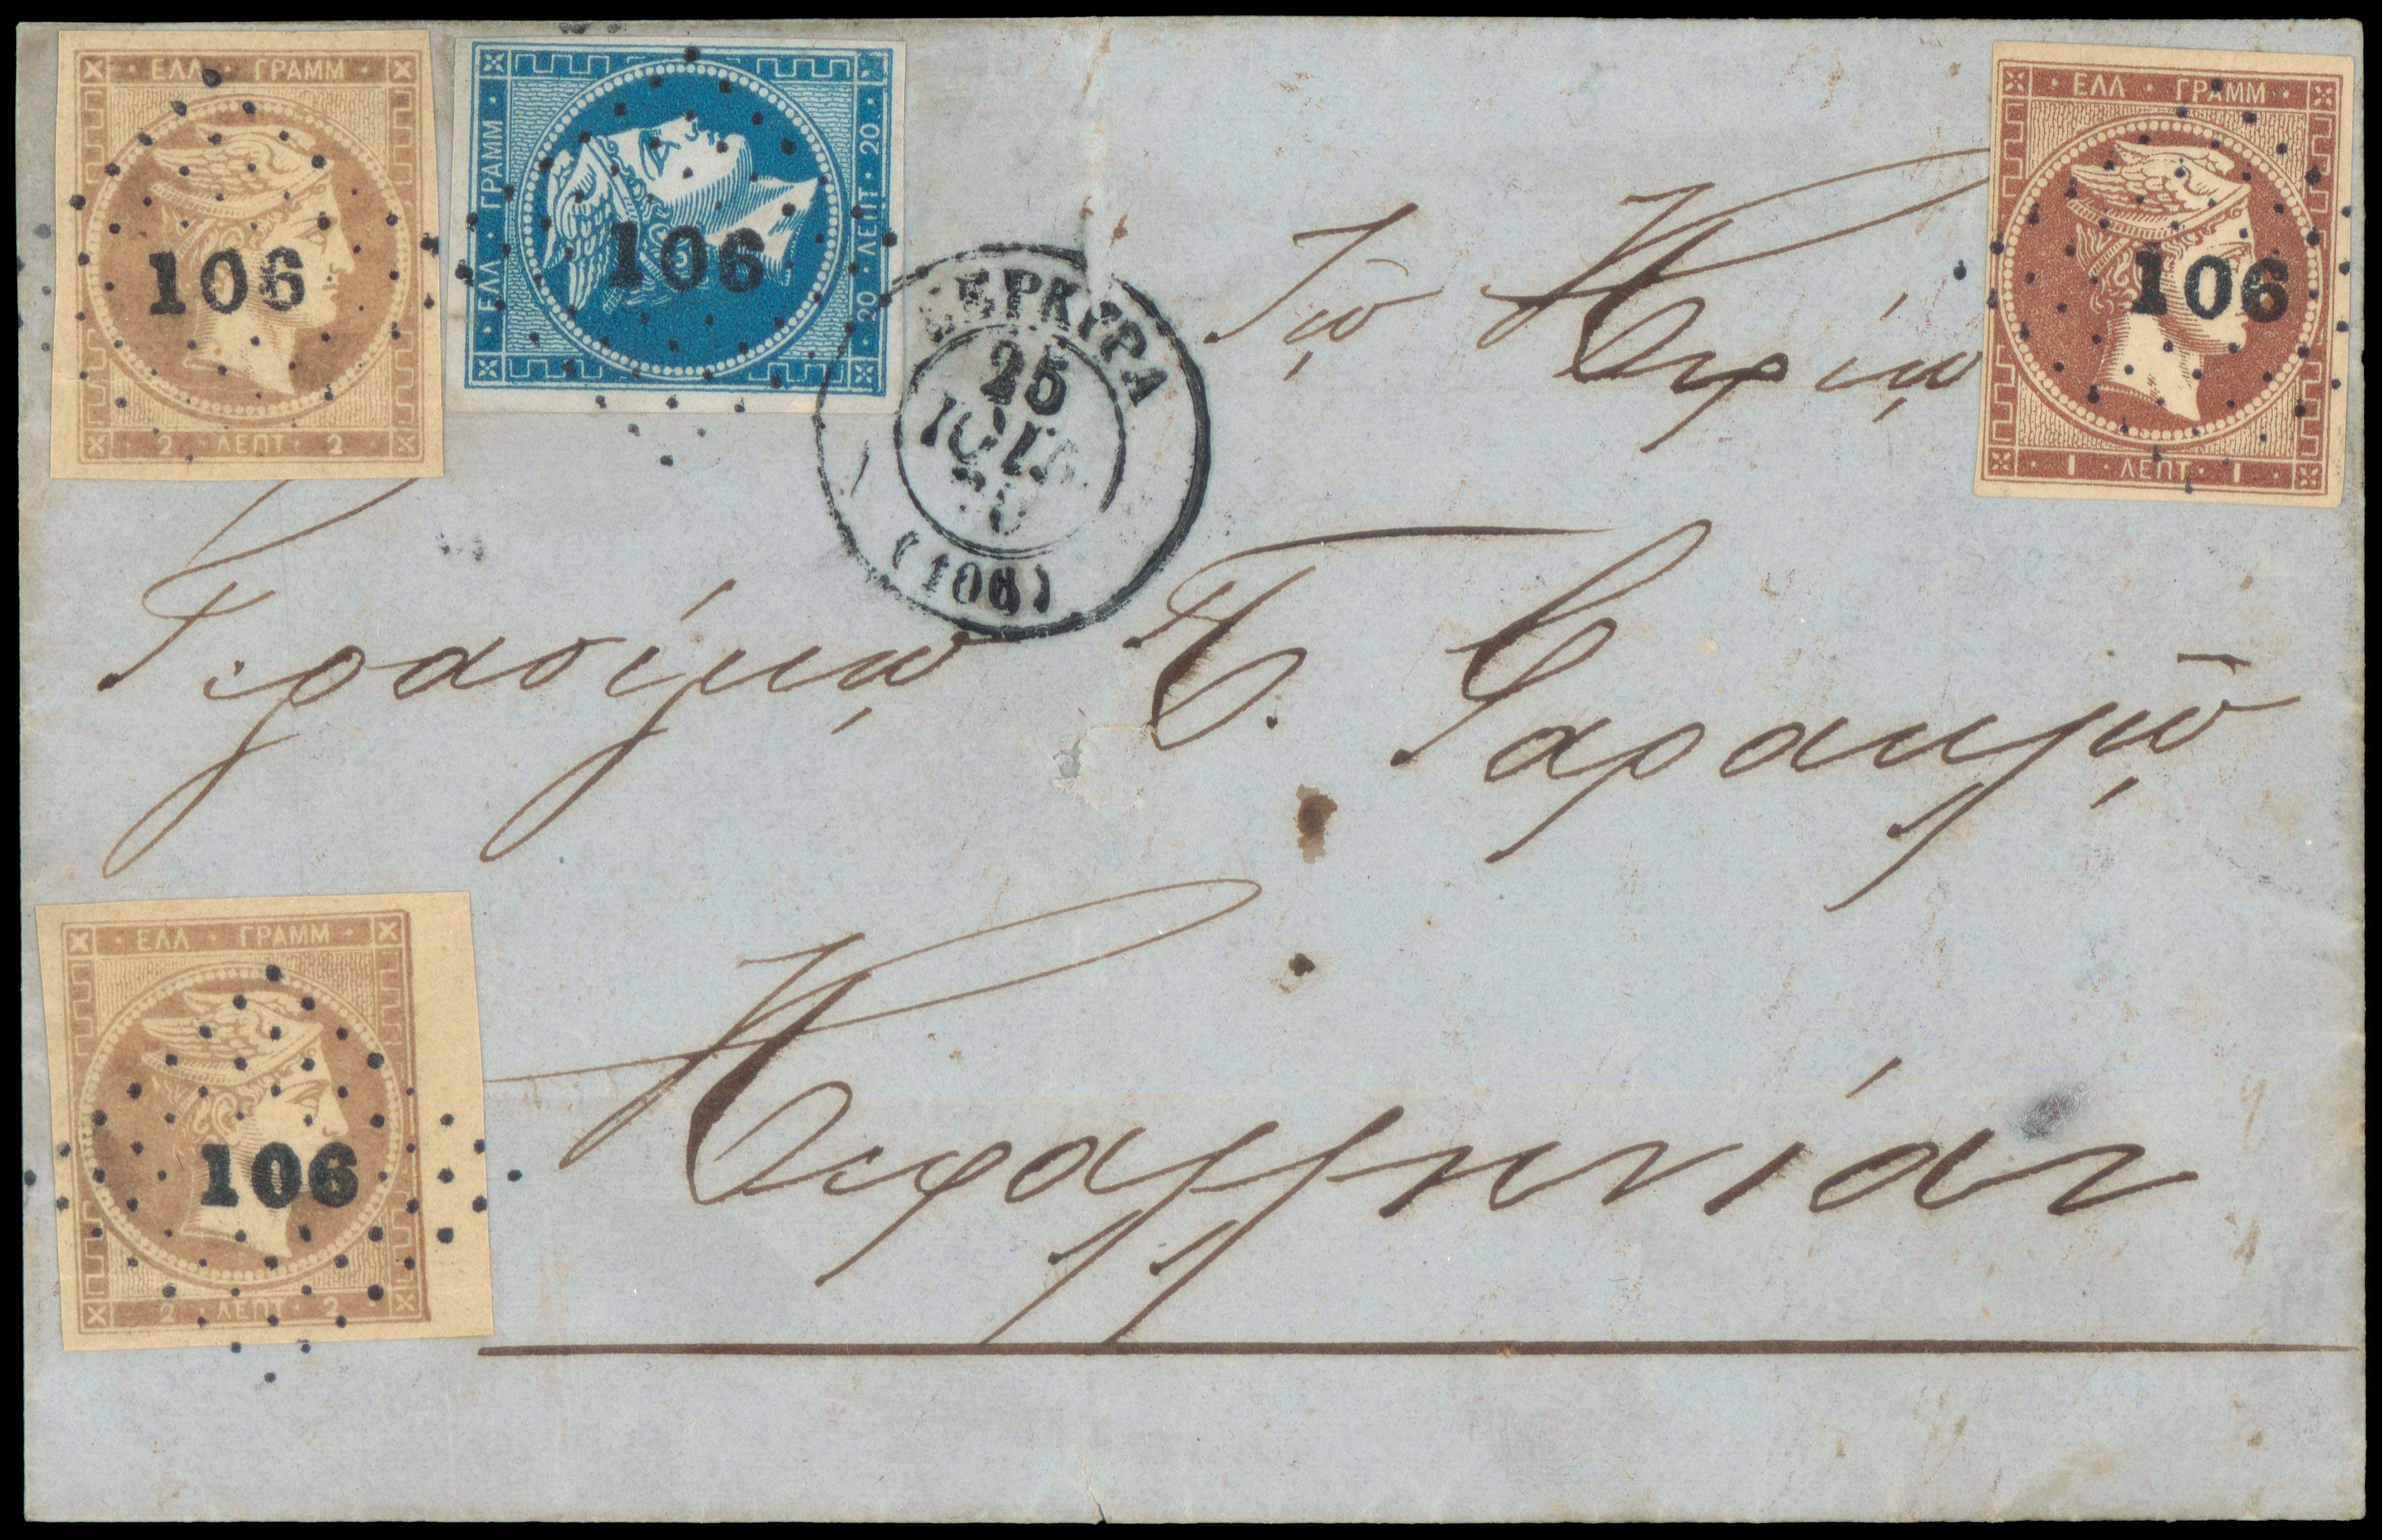 ΕΛΛ · ΓΡΑΜΜ
106
2 · ΛΕΠΤ · 2
ΕΛΛ · ΓΡΑΜΜ
106
20 · ΛΕΠΤ · 20
ΚΕΡΚΥΡΑ
25
ΙΟΥΛ
70
(106)
ΕΛΛ · ΓΡΑΜΜ
106
1 · ΛΕΠΤ · 1
Τῷ Κυρίῳ
Γερασίμῳ Π.
ΕΛΛ · ΓΡΑΜΜ
106
2 · ΛΕΠΤ · 2
Κεφαλληνίαν